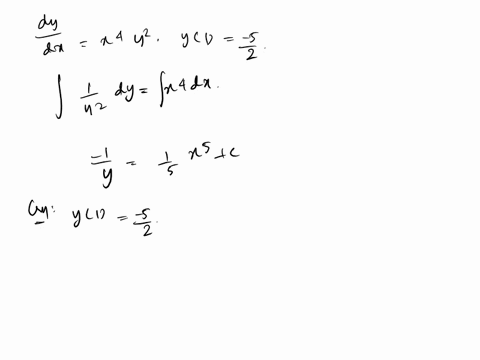 dy/dx = x^4 y^2. y(1) = -5/2.
∫ 1/y^2 dy = ∫x^4 dx.
-1/y = 1/5 x^5 + c
y(1) = -5/2.